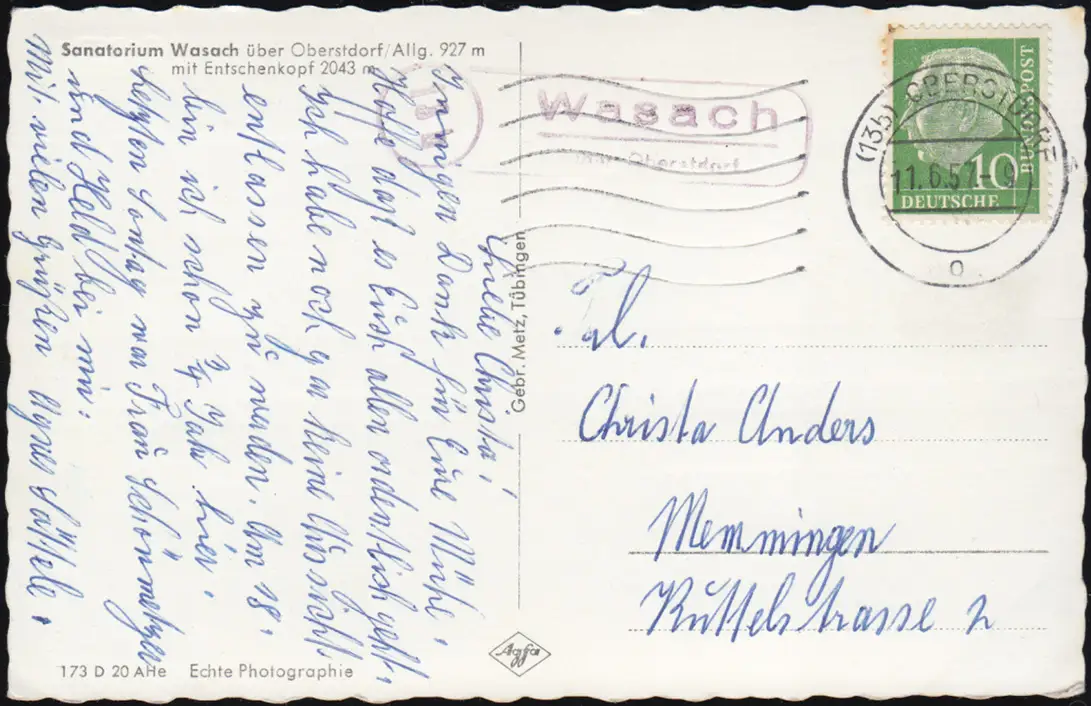 Sanatorium Wasach über Oberstdorf/Allg. 927 m
mit Entschenkopf 2043 m
Liebe Christa!
Innigen Dank für Eure Mühe.
Hoffe daß es Euch allen ordentlich geht.
Ich habe noch gar keine Aussicht
entlassen zu werden. Am 18.
bin ich schon ¾ Jahr hier.
Letzten Sontag war Frau Schönmetzer
und Held bei mir.
Mit vielen Grüßen Agnes Sättele.
Gebr. Metz, Tübingen
(13b)
Wasach
über Oberstdorf
(13b) OBERSTDORF
11.6.57-9
o
BUNDESPOST
10
DEUTSCHE
Frl.
Christa Anders
Memmingen
Kuttelstrasse 2
173 D 20 AHe Echte Photographie
Agfa